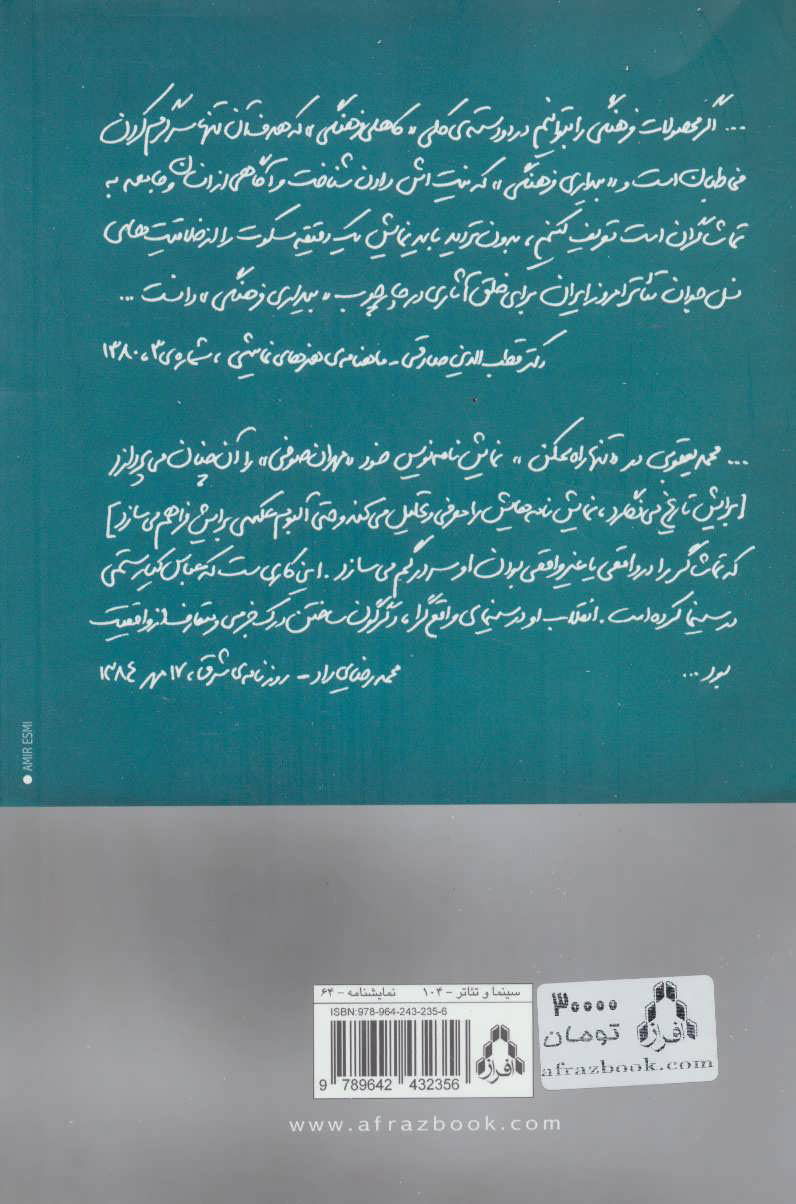 ... اگر محصولات فرهنگی را بتوانیم در دو دسته‌ی کلی «کاهلی فرهنگی» که هدفشان تنها سرگرم کردن
مخاطبان است و «بیداری فرهنگی» که نیت‌اش دادن شناخت و آگاهی از انسان و جامعه به
تماشاگران است تعریف کنیم، بدون تردید باید نمایش یک دقیقه سکوت را از خلاقیت‌های
نسل جوان تئاتر امروز ایران برای خلق آثاری در چارچوب «بیداری فرهنگی» دانست ...
دکتر قطب‌الدین صادقی - ماهنامه‌ی هنرهای نمایشی، شماره‌ی ۳، ۱۳۸۰
... محمد یعقوبی در «تنها راه ممکن» نمایش‌نامه‌نویس خود «مهران صوفی» را آن چنان می‌پردازد
[برایش تاریخ می‌نگارد، نمایش‌نامه‌هایش را معرفی و تحلیل می‌کند و حتی آلبوم عکسی برایش فراهم می‌سازد]
که تماشاگر را در واقعی یا غیرواقعی بودن او سردرگم می‌سازد. این کاری‌ست که عباس کیارستمی
در سینما کرده است. انقلاب او در سینمای واقع‌گرا، دگرگون ساختن درک جزمی و متعارف از واقعیت
بود ...
محمد رضایی‌راد - روزنامه‌ی شرق، ۱۷ مهر ۱۳۸۴
AMIR ESMI
سینما و تئاتر - ۱۰۴ نمایشنامه - ۶۴
ISBN:978-964-243-235-6
افراز
9 789642 432356
۳۰۰۰۰
تومان
افراز
afrazbook.com
www.afrazbook.com